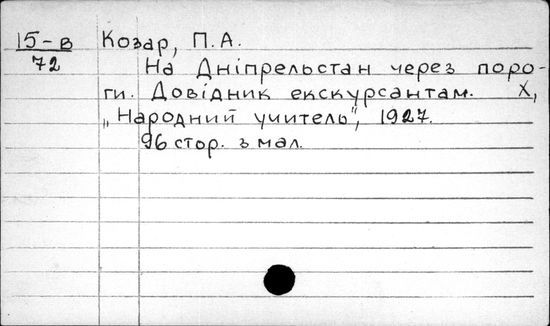 15-в Козар, П.А.
72 На Дніпрельстан через поро-
ги. Довідник екскурсантам. Х,
„Народний учитель", 1927.
96 стор. з мал.